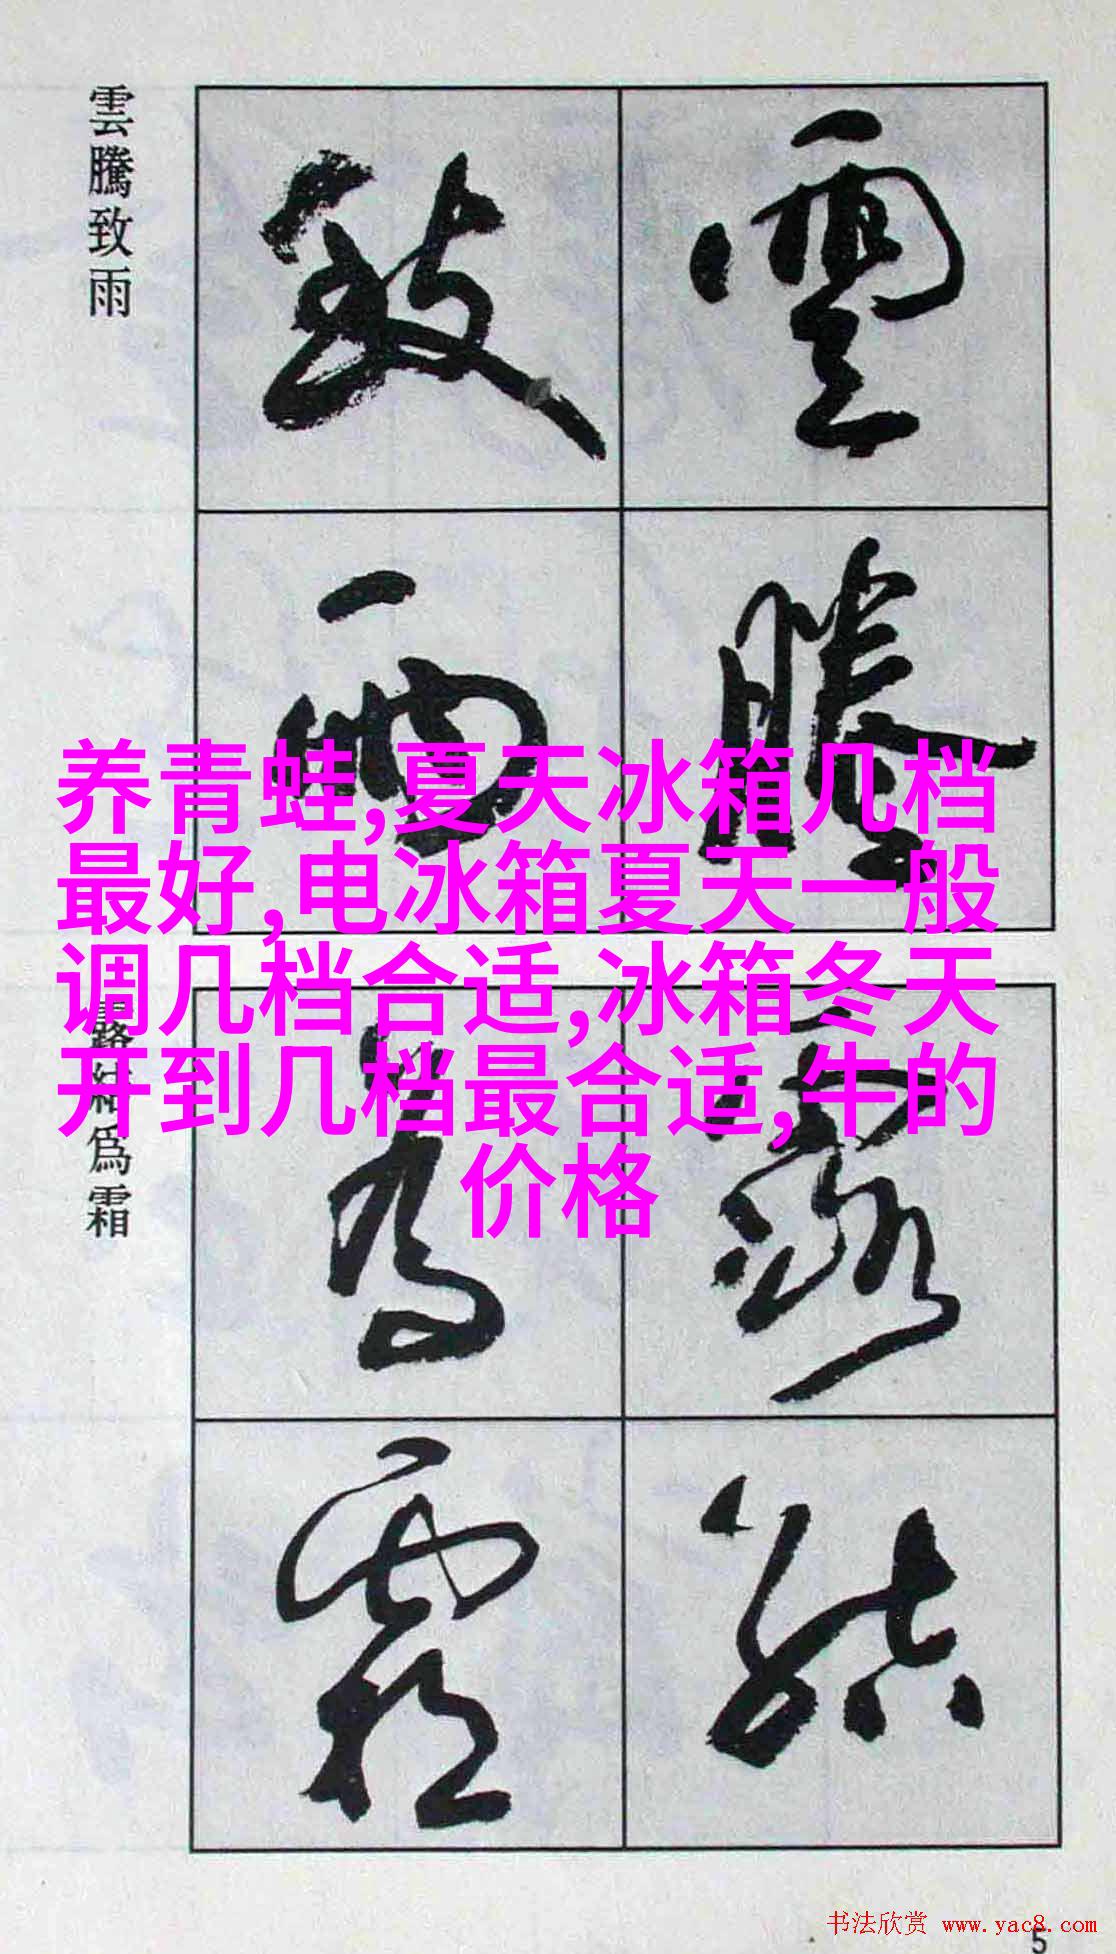 雲騰致雨
雲騰
致雨
养青蛙,夏天冰箱几档
最好,电冰箱夏天一般
调几档合适,冰箱冬天
开到几档最合适,牛的
价格
露結為霜
露結
為霜
书法欣赏 www.yac8.com
5